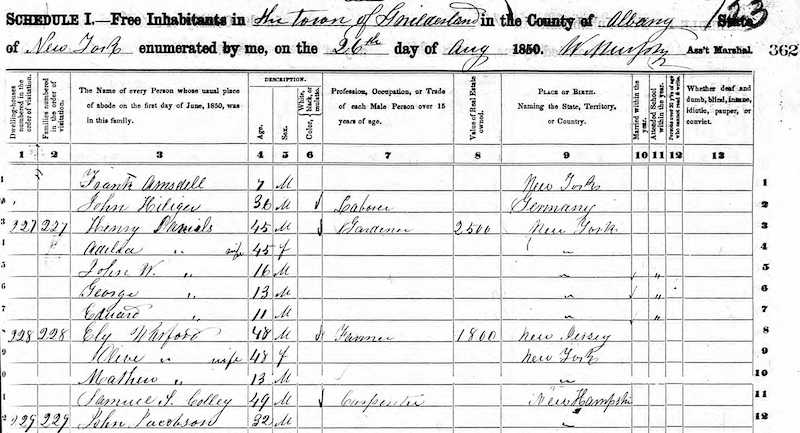 123
SCHEDULE I.—Free Inhabitants in the town of Guilderland in the County of Albany State
of New York enumerated by me, on the 26th day of Aug 1850. W Murphy Ass't Marshal. 362
Dwelling-houses numbered in the order of visitation.
Families numbered in the order of visitation.
The Name of every Person whose usual place of abode on the first day of June, 1850, was in this family.
DESCRIPTION.
Age.
Sex.
Color, White, black, or mulatto.
Profession, Occupation, or Trade of each Male Person over 15 years of age.
Value of Real Estate owned.
PLACE OF BIRTH. Naming the State, Territory, or Country.
Married within the year.
Attended School within the year.
Persons over 20 y'rs of age who cannot read & write.
Whether deaf and dumb, blind, insane, idiotic, pauper, or convict.
1 2 3 4 5 6 7 8 9 10 11 12 13
1 Frank Amsdell 7 M New York 1
2 John 30 M Laborer Germany 2
3 227 227 Henry Daniels 45 M Gardener 2500 New York 3
4 " wife 45 f " 4
5 John W. " 16 M " " 5
6 George " 13 M " " 6
7 Edward " 11 M " " 7
8 228 228 Ely 48 M Farmer 1800 New Jersey 8
9 Olive " wife 48 f New York 9
10 Mathew " 13 M " 10
11 Samuel S. Colley 49 M Carpenter New Hampshi 11
12 229 229 John Jacobson 32 M " 12